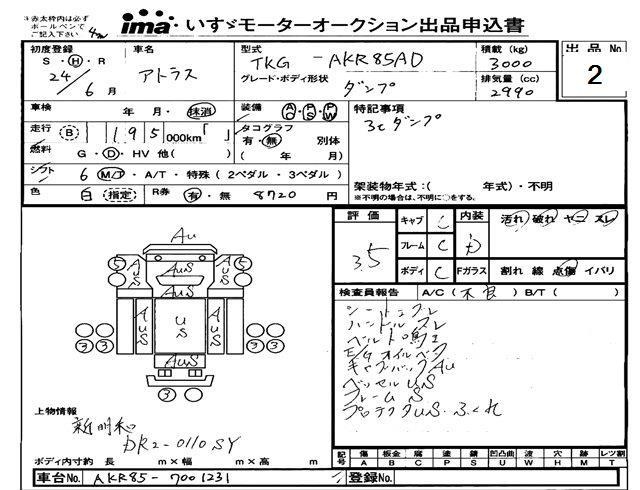 ※赤太枠内は必ず
ボールペンで
ご記入下さい
ima いすゞモーターオークション出品申込書
初度登録
S・H・R
24/6月
車名
アトラス
型式
TKG - AKR85AD
グレード・ボディ形状
ダンプ
積載(kg)
3000
排気量(cc)
2990
出品No
2
車検 年 月・抹消
装備 AC・PS・PW
特記事項
3tダンプ
走行 B 195000km「 」
タコグラフ
有・無 別体
( 年 月)
燃料 G・D・HV 他( )
シフト 6 M/T・A/T・特殊(2ペダル・3ペダル)
架装物年式:( 年式)・不明
※不明の場合は、不明に○をする。
色 白 指定 R券 有・無 8720 円
評価
3.5
キャブ C
フレーム C
ボディ C
内装 D
汚れ 破れ ヤニ スレ
Fガラス 割れ 線 点傷 イバリ
検査員報告 A/C(不良)B/T( )
シートスレ
ハンドルスレ
ベルト鳴
E/Gオイル
キャブバックAu
ベッセルUS
フレームS
プロテクタUS・ふくれ
Au
5 AuS AuS AuS 5
AuS US AuS
3 3 AuS 3 3
3
上物情報
新明和
DR2-0110SY
ボディ内寸約 長 m×幅 m×高 m
記号 傷A 板金B 腐C 塗P 錆S 凹凸曲U 波W 穴H 跡M レツ割T
車台No. AKR85-7001231
登録No.